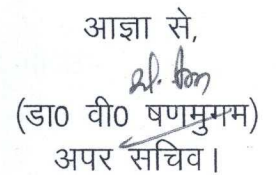 आज्ञा से,
(डा0 वी0 षणमुगम)
अपर सचिव।